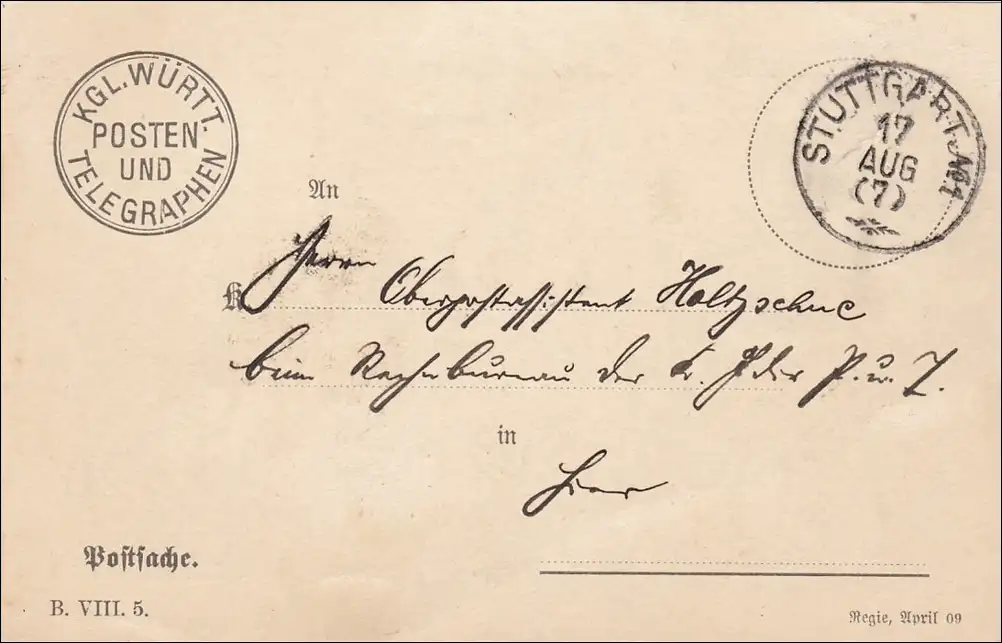 KGL. WÜRTT.
POSTEN
UND
TELEGRAPHEN
STUTTGART. No1
17
AUG
(7)
An
K
Herrn Oberpostassistent Holtzschue
beim Rechn.bureau der K. der P. u. T.
in
Hier
Postsache.
B. VIII. 5.
Regie, April 09